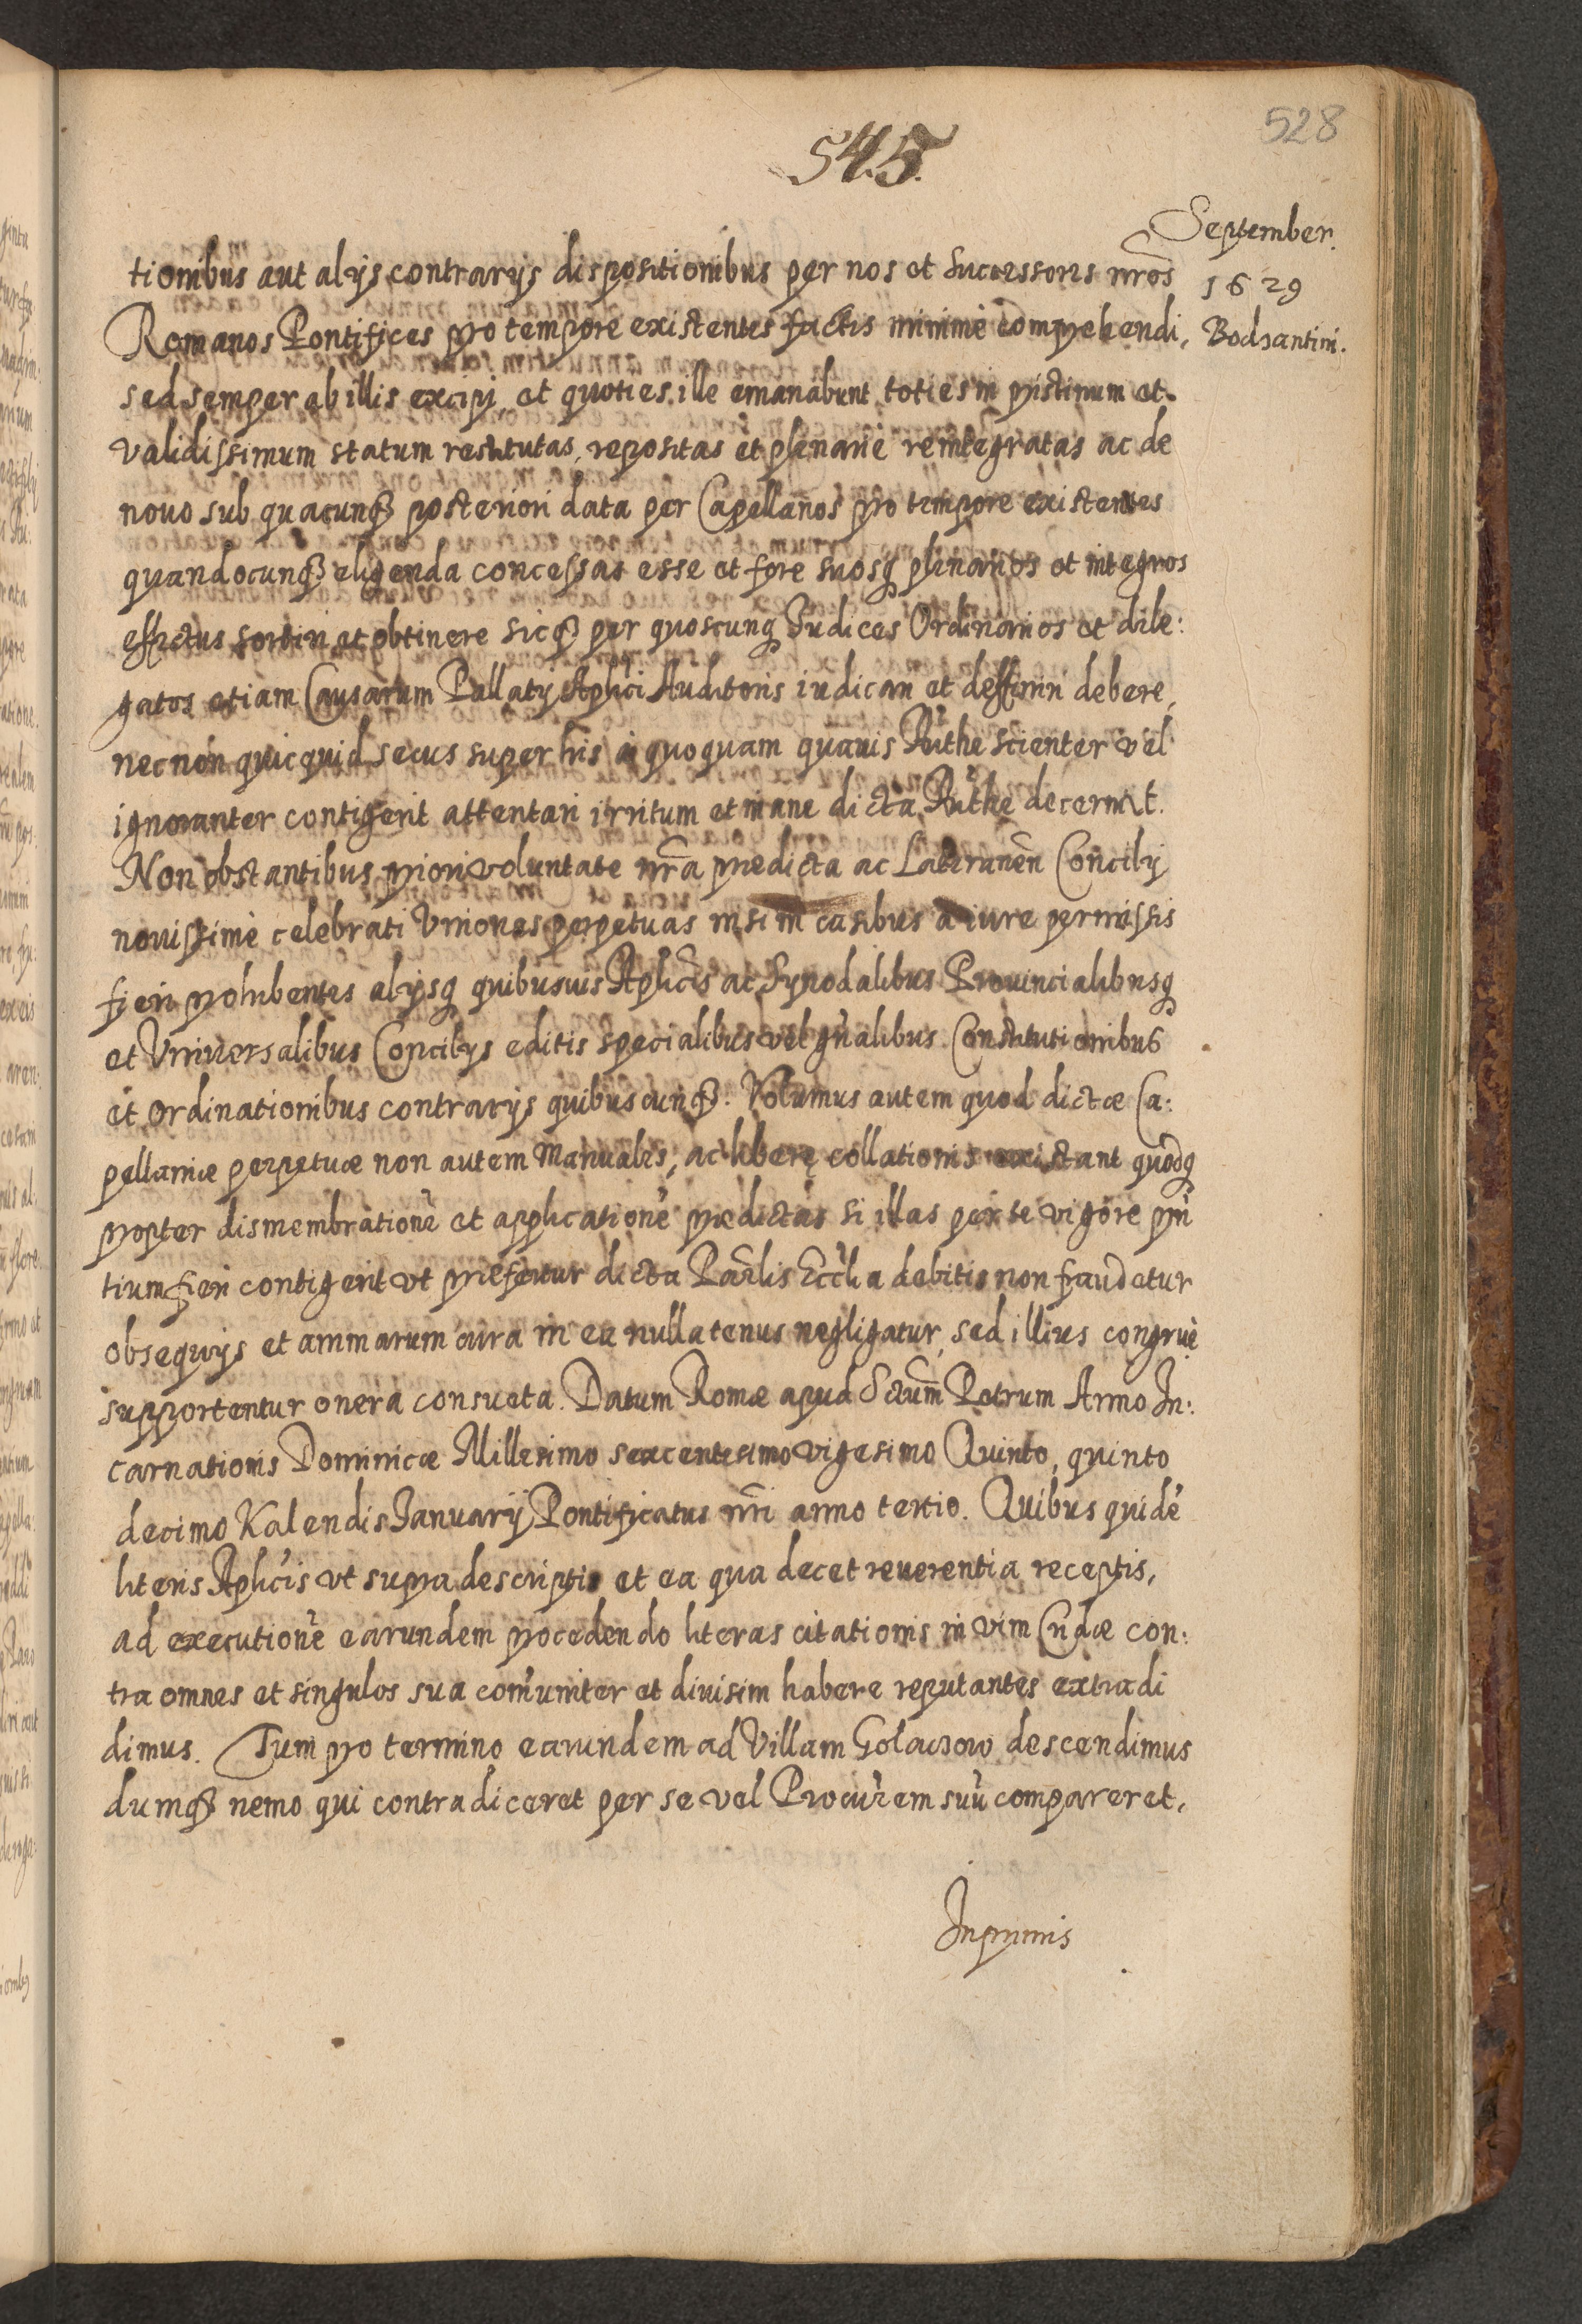 528
545.
September.
1629
Bodzantini.
tionibus aut alijs contrarijs dispositionibus per nos et Successores nr̃os
Romanos Pontifices pro tempore existentes factis minimè comprehendi,
sed semper ab illis excipi, et quoties ille emanabunt toties in pristinum et
validissimum statum restitutas, repositas et plenariè reintegratas ac de
nouo sub quacunq3 posteriori data per Capellanos pro tempore existentes
quandocunq3 eligenda concessas esse et fore suosq3 plenarios et integros
effectus sortiri et obtinere Sicq3 per quoscunq3 Judices Ordinarios et dele:
gatos etiam Causarum Pallatij Aplici Auditores iudicari et deffiniri debere,
necnon quicquid secus super his à quoquam quauis Authe scienter vel
ignoranter contigerit attentari irritum et inane dicta Authe decernit.
Non obstantibus priori voluntate nr̃a præedicta ac Lateranen̄ Concilij
nouissimè celebrati Vniones perpetuas nisi in casibus à iure permissis
fieri prohibentes alijsq3 quibusuis Aplicis ac Synodalibus Prouincialibusq3
et Vniuersalibus Concilijs editis specialibus vel gñalibus Constitutionibus
et ordinationibus contrarijs quibuscunq3. Volumus autem quod dictæ Ca:
pellaniæ perpetuæ non autem Manuales, ac liberę collationis existant quodq3
propter dismembrationē et applicationē prædictas si illas per te vigore pñ
tium fieri contigerit vt præfertur dicta Par̃lis Ecclia debitis non fraudetur
obsequijs et animarum cura in ea nullatenus negligatur, sed illius congruè
supportentur onera consueta. Datum Romæ apud Sctum̃ Petrum Anno In:
carnationis Dominicæ Millesimo sexcentesimo vigesimo Quinto, quinto
decimo Kalendis Januarij Pontificatus nr̃i anno tertio. Quibus quidē
literis Aplicis vt supra descriptis et ea qua decet reuerentia receptis,
ad executionē earundem procedendo literas citationis in vim Cridæ con:
tra omnes et singulos sua com̃uniter et diuisim habere reputantes extradi
dimus. Tum pro termino earundem ad Villam Golaczow descendimus
dumq3 nemo qui contradiceret per se vel Procur̃em suū compareret,
Inprimis